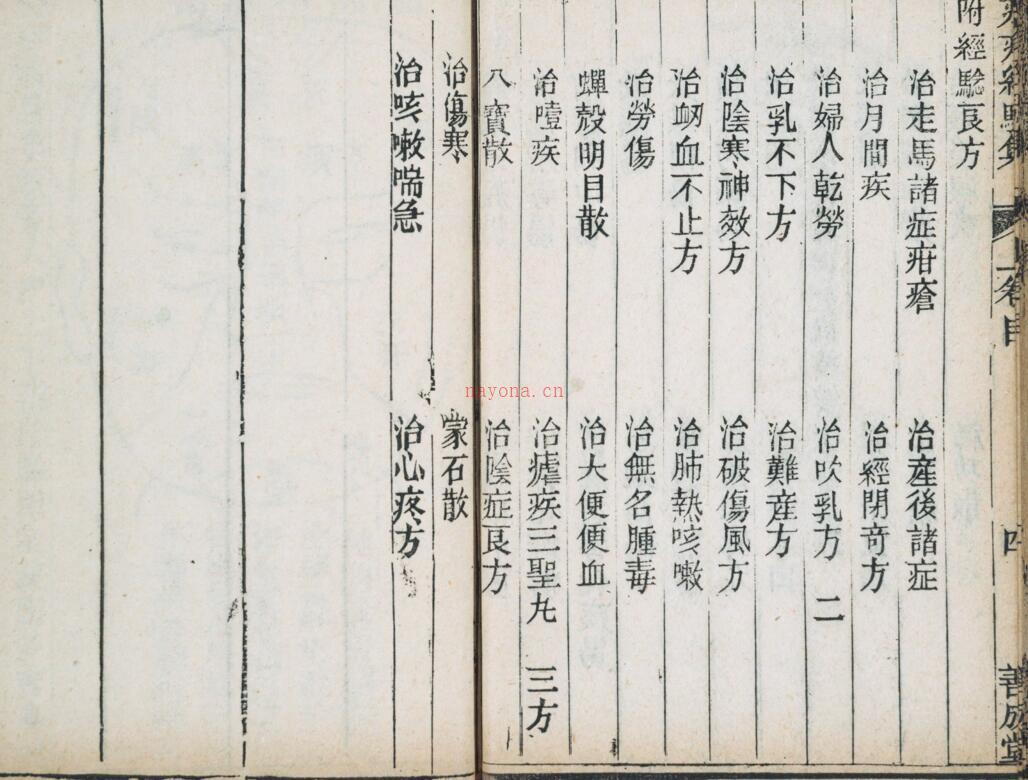 卷目 四 善成堂
附經驗良方
治走馬諸症疳瘡 治產後諸症
治月間疾 治經閉奇方
治婦人乾勞 治吹乳方 二
治乳不下方 治難產方
治陰寒神效方 治破傷風方
治衂血不止方 治肺熱咳嗽
治勞傷 治無名腫毒
蟬殼明目散 治大便便血
治噎疾 治瘧疾三聖丸 三方
八寶散 治陰症良方
治傷寒 蒙石散
治咳嗽喘急 治心疼方
nayona.cn